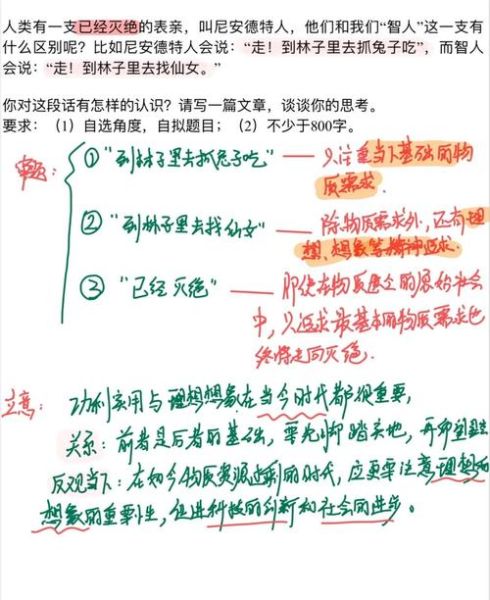 人类有一支已经灭绝的表亲，叫尼安德特人，他们和我们“智人”这一支有
什么区别呢？比如尼安德特人会说：“走！到林子里去抓兔子吃”，而智人
会说：“走！到林子里去找仙女。”
你对这段话有怎样的认识？请写一篇文章，谈谈你的思考。
要求：（1）自选角度，自拟题目；（2）不少于800字。
审题：
① “到林子里去抓兔子吃” —— 只注重当下基础的物
质需求.
② “到林子里去找仙女” —— 除物质需求外，还有理
想、想象等精神追求.
③ “已经灭绝” —— 即使在物质匮乏的原始社会
中，只追求最基本的物质需求也
终将走向灭绝.
立意： 功利实用与理想想象在当今时代都很重要，
关系：前者是后者的基础，要先脚踏实地，再仰望
反观当下：在如今物质资源过剩的时代，应更要注意理想和
想象的重要性，促进科技的创新和社会的进步。